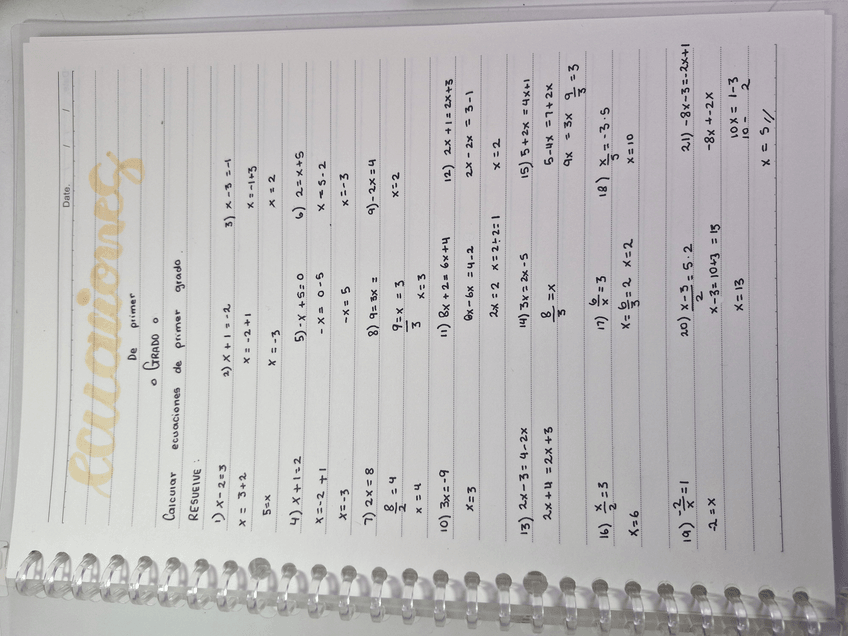 Date. / /
ecuaciones
De primer
o GRADO o
Calcular ecuaciones de primer grado.
RESUELVE:
1) x-2=3 2) x+1=-2 3) x-3=-1
x = 3+2 x = -2+1 x = -1+3
5=x x=-3 x = 2
4) x+1=2 5) -x+5=0 6) 2=x+5
x=-2+1 -x = 0-5 x = 5-2
x=-3 -x = 5 x=-3
7) 2x=8 8) 9=3x= 9) -2x=4
8/2=4 9/3=x=3 x=2
x=4 x=3
10) 3x=-9 11) 8x+2=6x+4 12) 2x+1=2x+3
x=3 8x-6x=4-2 2x-2x=3-1
2x=2 x=2÷2=1 x=2
13) 2x-3=4-2x 14) 3x=2x-5 15) 5+2x=4x+1
2x+4=2x+3 8/3=x 5-4x=7+2x
9x=3x 9/3=3
16) x/2=3 17) 6/x=3 18) x/5=-3·5
x=6 x=6/3=2 x=2 x=10
19) -2/x=1 20) x-3/2=5·2 21) -8x-3=-2x+1
-2=x x-3=10+3=13 -8x+-2x
x=13 10x=1-3
10- 2
x=5//